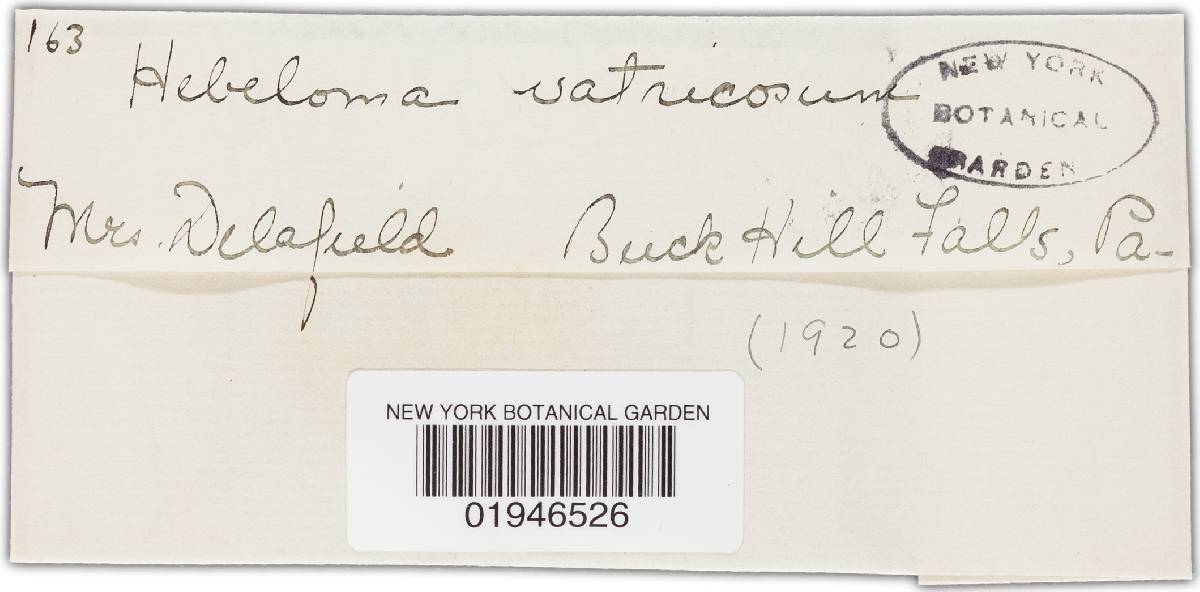 163
Hebeloma vatricosum
NEW YORK
BOTANICAL
GARDEN
Mrs. Delafield Buck Hill Falls, Pa-
(1920)
NEW YORK BOTANICAL GARDEN
01946526